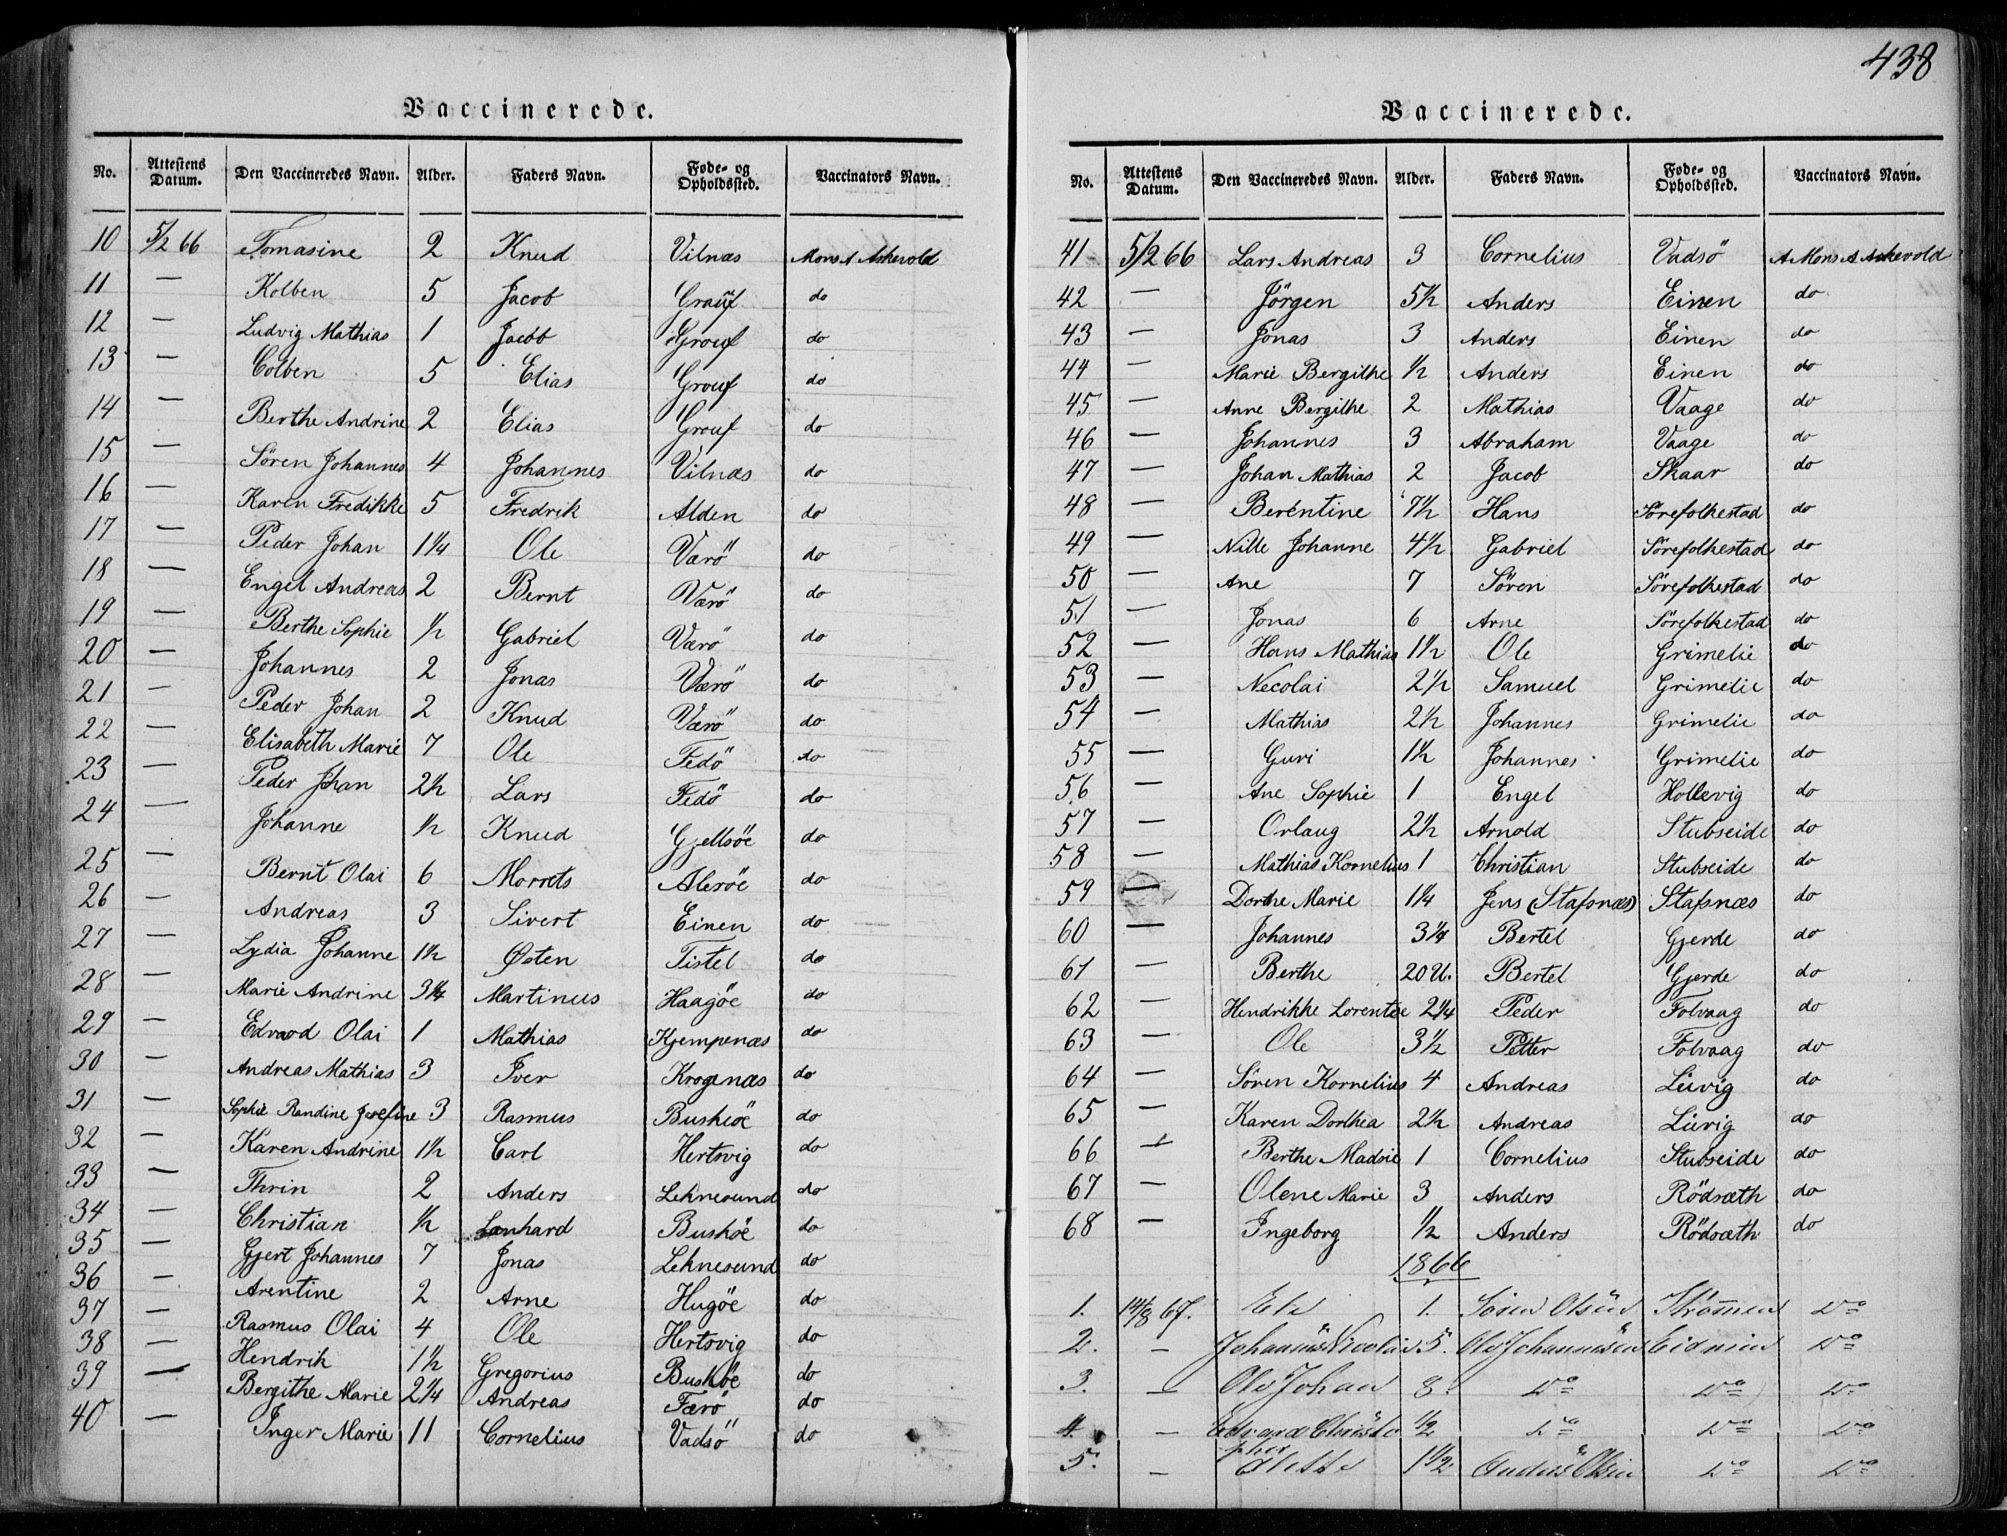 438
Vaccinerede.
No. Attestens Datum. Den Vaccineredes Navn. Alder. Faders Navn. Føde- og Opholdssted. Vaccinators Navn.
10 5/2 66 Tomasine 2 Knud Vilnæs Mons A Askevold
11 — Kolben 5 Jacob Grouf do
12 — Ludvig Mathias 1 Jacob Grouf do
13 — Colben 5 Elias Grouf do
14 — Berthe Andrine 2 Elias Grouf do
15 — Sören Johannes 4 Johannes Vilnæs do
16 — Karen Fredikke 5 Fredrik Alden do
17 — Peder Johan 1 1/4 Ole Værö do
18 — Engel Andreas 2 Bernt Værö do
19 — Berthe Sophie 1/2 Gabriel Værö do
20 — Johannes 2 Jonas Værö do
21 — Peder Johan 2 Knud Værö do
22 — Elisabeth Marie 7 Ole Fedö do
23 — Peder Johan 2 1/2 Lars Fedö do
24 — Johanne 1/2 Knud Gjellsöe do
25 — Bernt Olai 6 Morrets Aleröe do
26 — Andreas 3 Sivert Einen do
27 — Lydia Johanne 1 1/2 Østen Tistel do
28 — Marie Andrine 3 1/4 Martinus Haagöe do
29 — Edvard Olai 1 Mathias Kjempenæs do
30 — Andreas Mathias 3 Iver Krogenæs do
31 — Sophie Randine Josefine 3 Rasmus Buskiöe do
32 — Karen Andrine 1 1/2 Carl Hertsvig do
33 — Thrin 2 Anders Leknesund do
34 — Christian 1/2 Lenhard Busköe do
35 — Gjert Johannes 7 Jonas Leknesund do
36 — Arentine 2 Arne Hugöe do
37 — Rasmus Olai 4 Ole Hertsvig do
38 — Hendrik 1 1/2 Gregorius Busköe do
39 — Bergithe Marie 2 1/4 Andreas Færö do
40 — Inger Marie 11 Cornelius Vadsö do
Vaccinerede.
No. Attestens Datum. Den Vaccineredes Navn. Alder. Faders Navn. Føde- og Opholdssted. Vaccinators Navn.
41 5/2 66 Lars Andreas 3 Cornelius Vadsö A Mons A Askevold
42 — Jörgen 5 1/2 Anders Einen do
43 — Jonas 3 Anders Einen do
44 — Marie Bergithe 1/2 Anders Einen do
45 — Anne Bergithe 2 Mathias Vaage do
46 — Johannes 3 Abraham Vaage do
47 — Johan Mathias 2 Jacob Skaar do
48 — Berentine 7 1/2 Hans Sörefolkestad do
49 — Nille Johanne 4 1/2 Gabriel Sörefolkestad do
50 — Ane 7 Sören Sörefolkestad do
51 — Jonas 6 Arne Sörefolkestad do
52 — Hans Mathias 1 1/2 Ole Grimelie do
53 — Necolai 2 1/2 Samuel Grimelie do
54 — Mathias 2 1/2 Johannes Grimelie do
55 — Guri 1 1/2 Johannes Grimelie do
56 — Ane Sophie 1 Engel Hollevig do
57 — Orlaug 2 1/2 Arnold Stubseide do
58 — Mathias Kornelius 1 Christian Stubseide do
59 — Dorthe Marie 1 1/4 Jens (Stafsnæs) Stafsnæs do
60 — Johannes 3 1/4 Bertel Gjerde do
61 — Berthe 20 U. Bertel Gjerde do
62 — Hendrikke Lorentse 2 1/4 Peder Folvaag do
63 — Ole 3 1/2 Petter Folvaag do
64 — Sören Kornelius 4 Andreas Liivig do
65 — Karen Dorthea 2 1/2 Andreas Liivig do
66 — Berthe Madsie 1 Cornelius Stubseide do
67 — Olene Marie 3 Anders Rödsæth do
68 — Ingeborg 1/2 Anders Rödsæth do
1866
1. 14/8 67. 1. Sören Olsen Strömmen Do
2. — Johannes Nicolai 5. Ole Johannesen Do
3. — Ole Johan 8. Do Do Do
4. — Edvard Christopher 1/2 Do Do Do
5. — 1 1/2 Anders Olsen Do Do